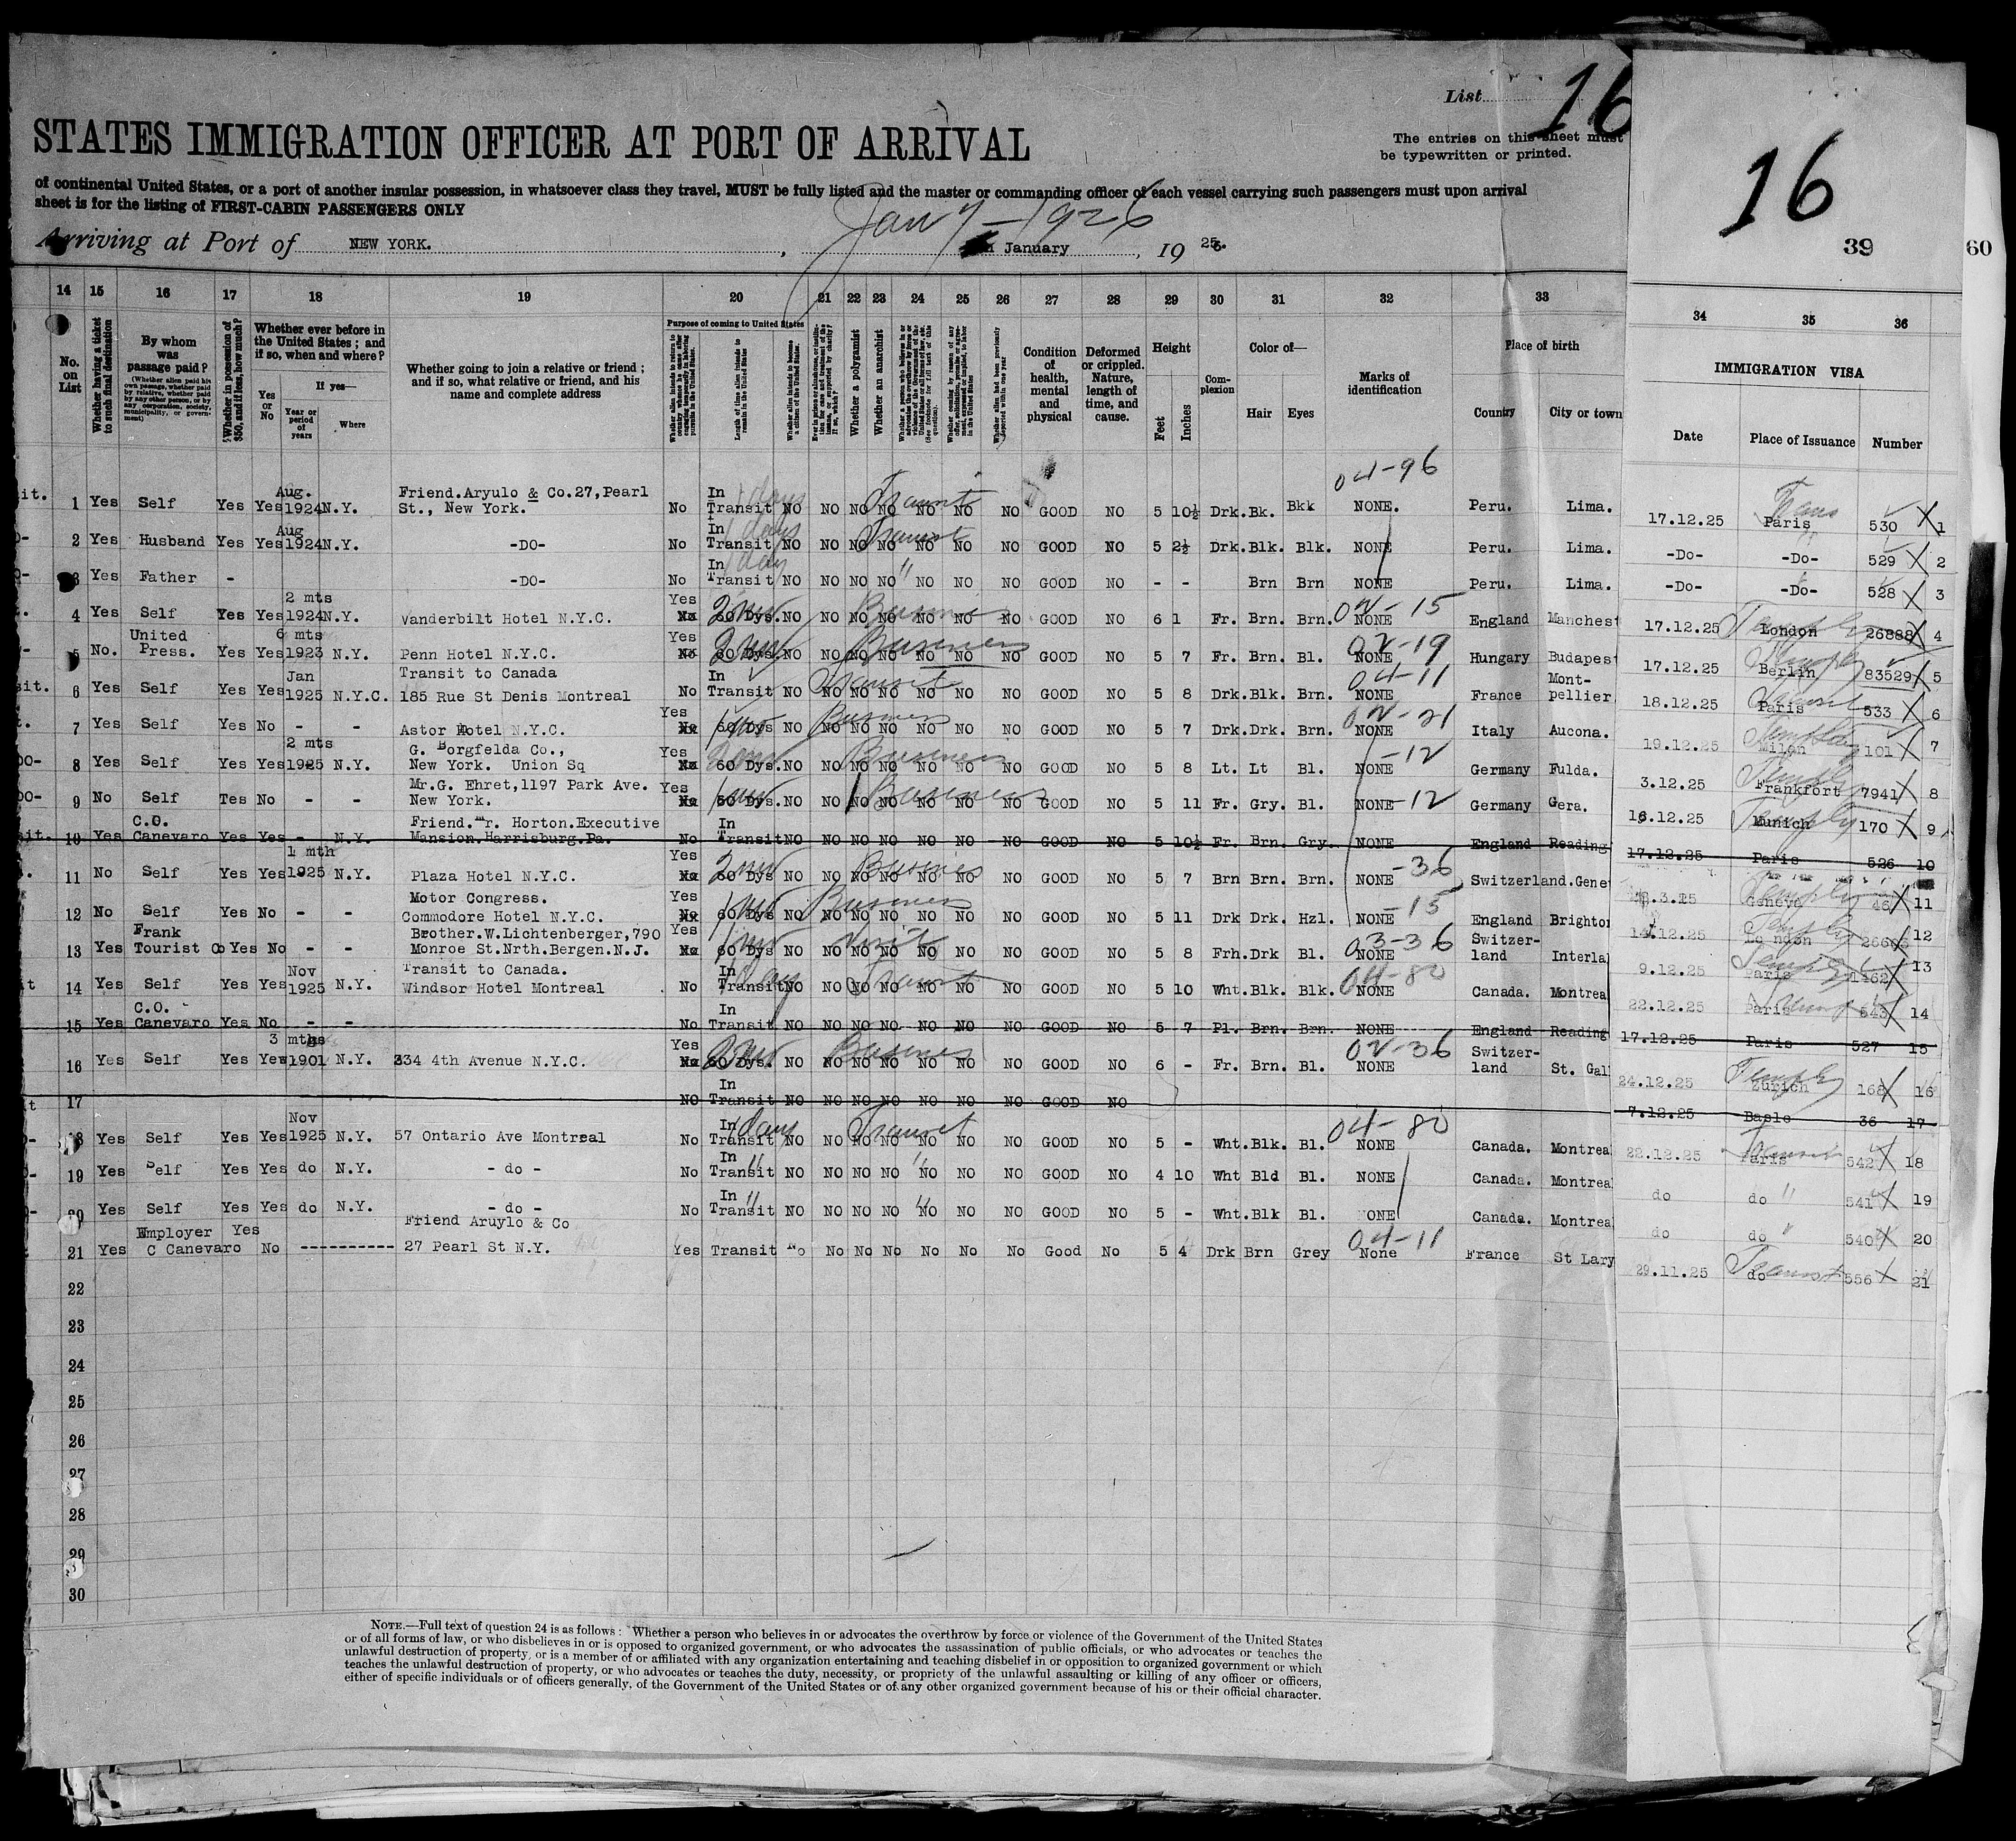 List 16
STATES IMMIGRATION OFFICER AT PORT OF ARRIVAL
The entries on this sheet must
be typewritten or printed.
of continental United States, or a port of another insular possession, in whatsoever class they travel, MUST be fully listed and the master or commanding officer of each vessel carrying such passengers must upon arrival
sheet is for the listing of FIRST-CABIN PASSENGERS ONLY
Jan 7 - 1926
Arriving at Port of NEW YORK. , January , 19
16
39
60
14 15 16 17 18 19 20 21 22 23 24 25 26 27 28 29 30 31 32 33 34 35 36
No. on List
Whether having a ticket to such final destination
By whom was passage paid?
(Whether alien paid his own passage, whether paid by relative, whether paid by any other person, or by any corporation, society, municipality, or government)
Whether in possession of $50, and if less, how much?
Whether ever before in the United States; and if so, when and where?
Yes or No
If yes—
Year or period of years
Where
Whether going to join a relative or friend; and if so, what relative or friend, and his name and complete address
Purpose of coming to United States
Length of time alien intends to remain in the United States
Whether alien intends to become a citizen of the United States.
Whether a polygamist
Whether an anarchist
Condition of health, mental and physical
Deformed or crippled. Nature, length of time, and cause.
Height
Feet
Inches
Complexion
Color of—
Hair
Eyes
Marks of identification
Place of birth
Country
City or town
IMMIGRATION VISA
Date
Place of Issuance
Number
04-96
1 Yes Self Yes Yes Aug. 1924 N.Y. Friend.Aryulo & Co.27,Pearl St., New York. No In Transit NO NO NO NO NO NO NO GOOD NO 5 10½ Drk. Bk. Bkk NONE. Peru. Lima. 17.12.25 Paris 530 1
2 Yes Husband Yes Yes Aug 1924 N.Y. -DO- No In Transit NO NO NO NO NO NO NO GOOD NO 5 2½ Drk. Blk. Blk. NONE Peru. Lima. -Do- -Do- 529 2
3 Yes Father - -DO- No In Transit NO NO NO NO NO NO NO GOOD NO - - Brn Brn NONE Peru. Lima. -Do- -Do- 528 3
4 Yes Self Yes Yes 2 mts 1924 N.Y. Vanderbilt Hotel N.Y.C. Yes 60 Dys. NO NO NO NO NO NO NO GOOD NO 6 1 Fr. Brn. Brn. 02-15 NONE England Manchest 17.12.25 London 26888 4
5 No. United Press. Yes Yes 6 mts 1923 N.Y. Penn Hotel N.Y.C. Yes 60 Dys. NO NO NO NO NO NO NO GOOD NO 5 7 Fr. Brn. Bl. 02-19 NONE Hungary Budapest 17.12.25 Berlin 83529 5
6 Yes Self Yes Yes Jan 1925 N.Y.C. Transit to Canada 185 Rue St Denis Montreal No In Transit NO NO NO NO NO NO NO GOOD NO 5 8 Drk. Blk. Brn. 04-11 NONE France Mont-pellier 18.12.25 Paris 533 6
7 Yes Self Yes No - - Astor Hotel N.Y.C. Yes 60 Dys NO NO NO NO NO NO NO GOOD NO 5 7 Drk. Drk. Brn. 02-21 NONE Italy Aucona. 19.12.25 Milan 101 7
8 Yes Self Yes Yes 2 mts 1925 N.Y. G. Borgfelda Co., New York. Union Sq Yes 60 Dys. NO NO NO NO NO NO NO GOOD NO 5 8 Lt. Lt Bl. -12 NONE Germany Fulda. 3.12.25 Frankfort 7941 8
9 No Self Tes No - - Mr.G. Ehret,1197 Park Ave. New York. Yes Dys. NO NO NO NO NO NO NO GOOD NO 5 11 Fr. Gry. Bl. NONE -12 Germany Gera. .12.25 Munich 170 9
10 Yes C.O. Canevaro Yes Yes - N.Y. Friend. mr. Horton.Executive Mansion.Harrisburg.Pa. No In Transit NO NO NO NO NO NO NO GOOD NO 5 10½ Fr. Brn. Gry. NONE England Reading 17.12.25 Paris 526 10
11 No Self Yes Yes 1 mth 1925 N.Y. Plaza Hotel N.Y.C. Yes 60 Dys NO NO NO NO NO NO NO GOOD NO 5 7 Brn Brn. Brn. NONE -36 Switzerland. Genev Geneva 46 11
12 No Self Yes No - - Motor Congress. Commodore Hotel N.Y.C. Yes 60 Dys NO NO NO NO NO NO NO GOOD NO 5 11 Drk Drk. Hzl. NONE -15 England Brighton 14.12.25 London 12
13 Yes Frank Tourist Co Yes No - - Brother.W.Lichtenberger,790 Monroe St.Nrth.Bergen.N.J. Yes 60 Dys NO NO NO NO NO NO NO GOOD NO 5 8 Frh. Drk Bl. 03-36 NONE Switzer-land Interla 9.12.25 Paris 1462 13
14 Yes Self Yes Yes Nov 1925 N.Y. Transit to Canada. Windsor Hotel Montreal No In Transit NO NO NO NO NO NO NO GOOD NO 5 10 Wht. Blk. Blk. 04-80 NONE Canada. Montrea 22.12.25 Paris 543 14
15 Yes C.O. Canevaro Yes No - - No In Transit NO NO NO NO NO NO NO GOOD NO 5 7 Pl. Brn. Brn. NONE England Reading 17.12.25 Paris 527 15
16 Yes Self Yes Yes 3 mths 1901 N.Y. 334 4th Avenue N.Y.C. Yes 60 Dys. NO NO NO NO NO NO NO GOOD NO 6 - Fr. Brn. Bl. 02-36 NONE Switzer-land St. Gal 24.12.25 Zurich 168 16
17 NO In Transit NO NO NO NO NO NO NO GOOD NO 7.12.25 Basle 36 17
18 Yes Self Yes Yes Nov 1925 N.Y. 57 Ontario Ave Montreal No In Transit NO NO NO NO NO NO NO GOOD NO 5 - Wht. Blk. Bl. 04-80 NONE Canada. Montrea 22.12.25 Paris 542 18
19 Yes Self Yes Yes do N.Y. - do - No In Transit NO NO NO NO NO NO NO GOOD NO 4 10 Wht Bld Bl. NONE Canada. Montrea do do 541 19
20 Yes Self Yes Yes do N.Y. - do - No In Transit NO NO NO NO NO NO NO GOOD NO 5 - Wht. Blk Bl. NONE Canada. Montrea do do 540 20
21 Yes Employer C Canevaro Yes No ----------- Friend Aruylo & Co 27 Pearl St N.Y. Yes Transit No No No No No No No Good No 5 4 Drk Brn Grey 04-11 None France St Lary 29.11.25 do 556 21
22
23
24
25
26
27
28
29
30
NOTE.—Full text of question 24 is as follows: Whether a person who believes in or advocates the overthrow by force or violence of the Government of the United States
or of all forms of law, or who disbelieves in or is opposed to organized government, or who advocates the assassination of public officials, or who advocates or teaches the
unlawful destruction of property, or is a member of or affiliated with any organization entertaining and teaching disbelief in or opposition to organized government or which
teaches the unlawful destruction of property, or who advocates or teaches the duty, necessity, or propriety of the unlawful assaulting or killing of any officer or officers,
either of specific individuals or of officers generally, of the Government of the United States or of any other organized government because of his or their official character.